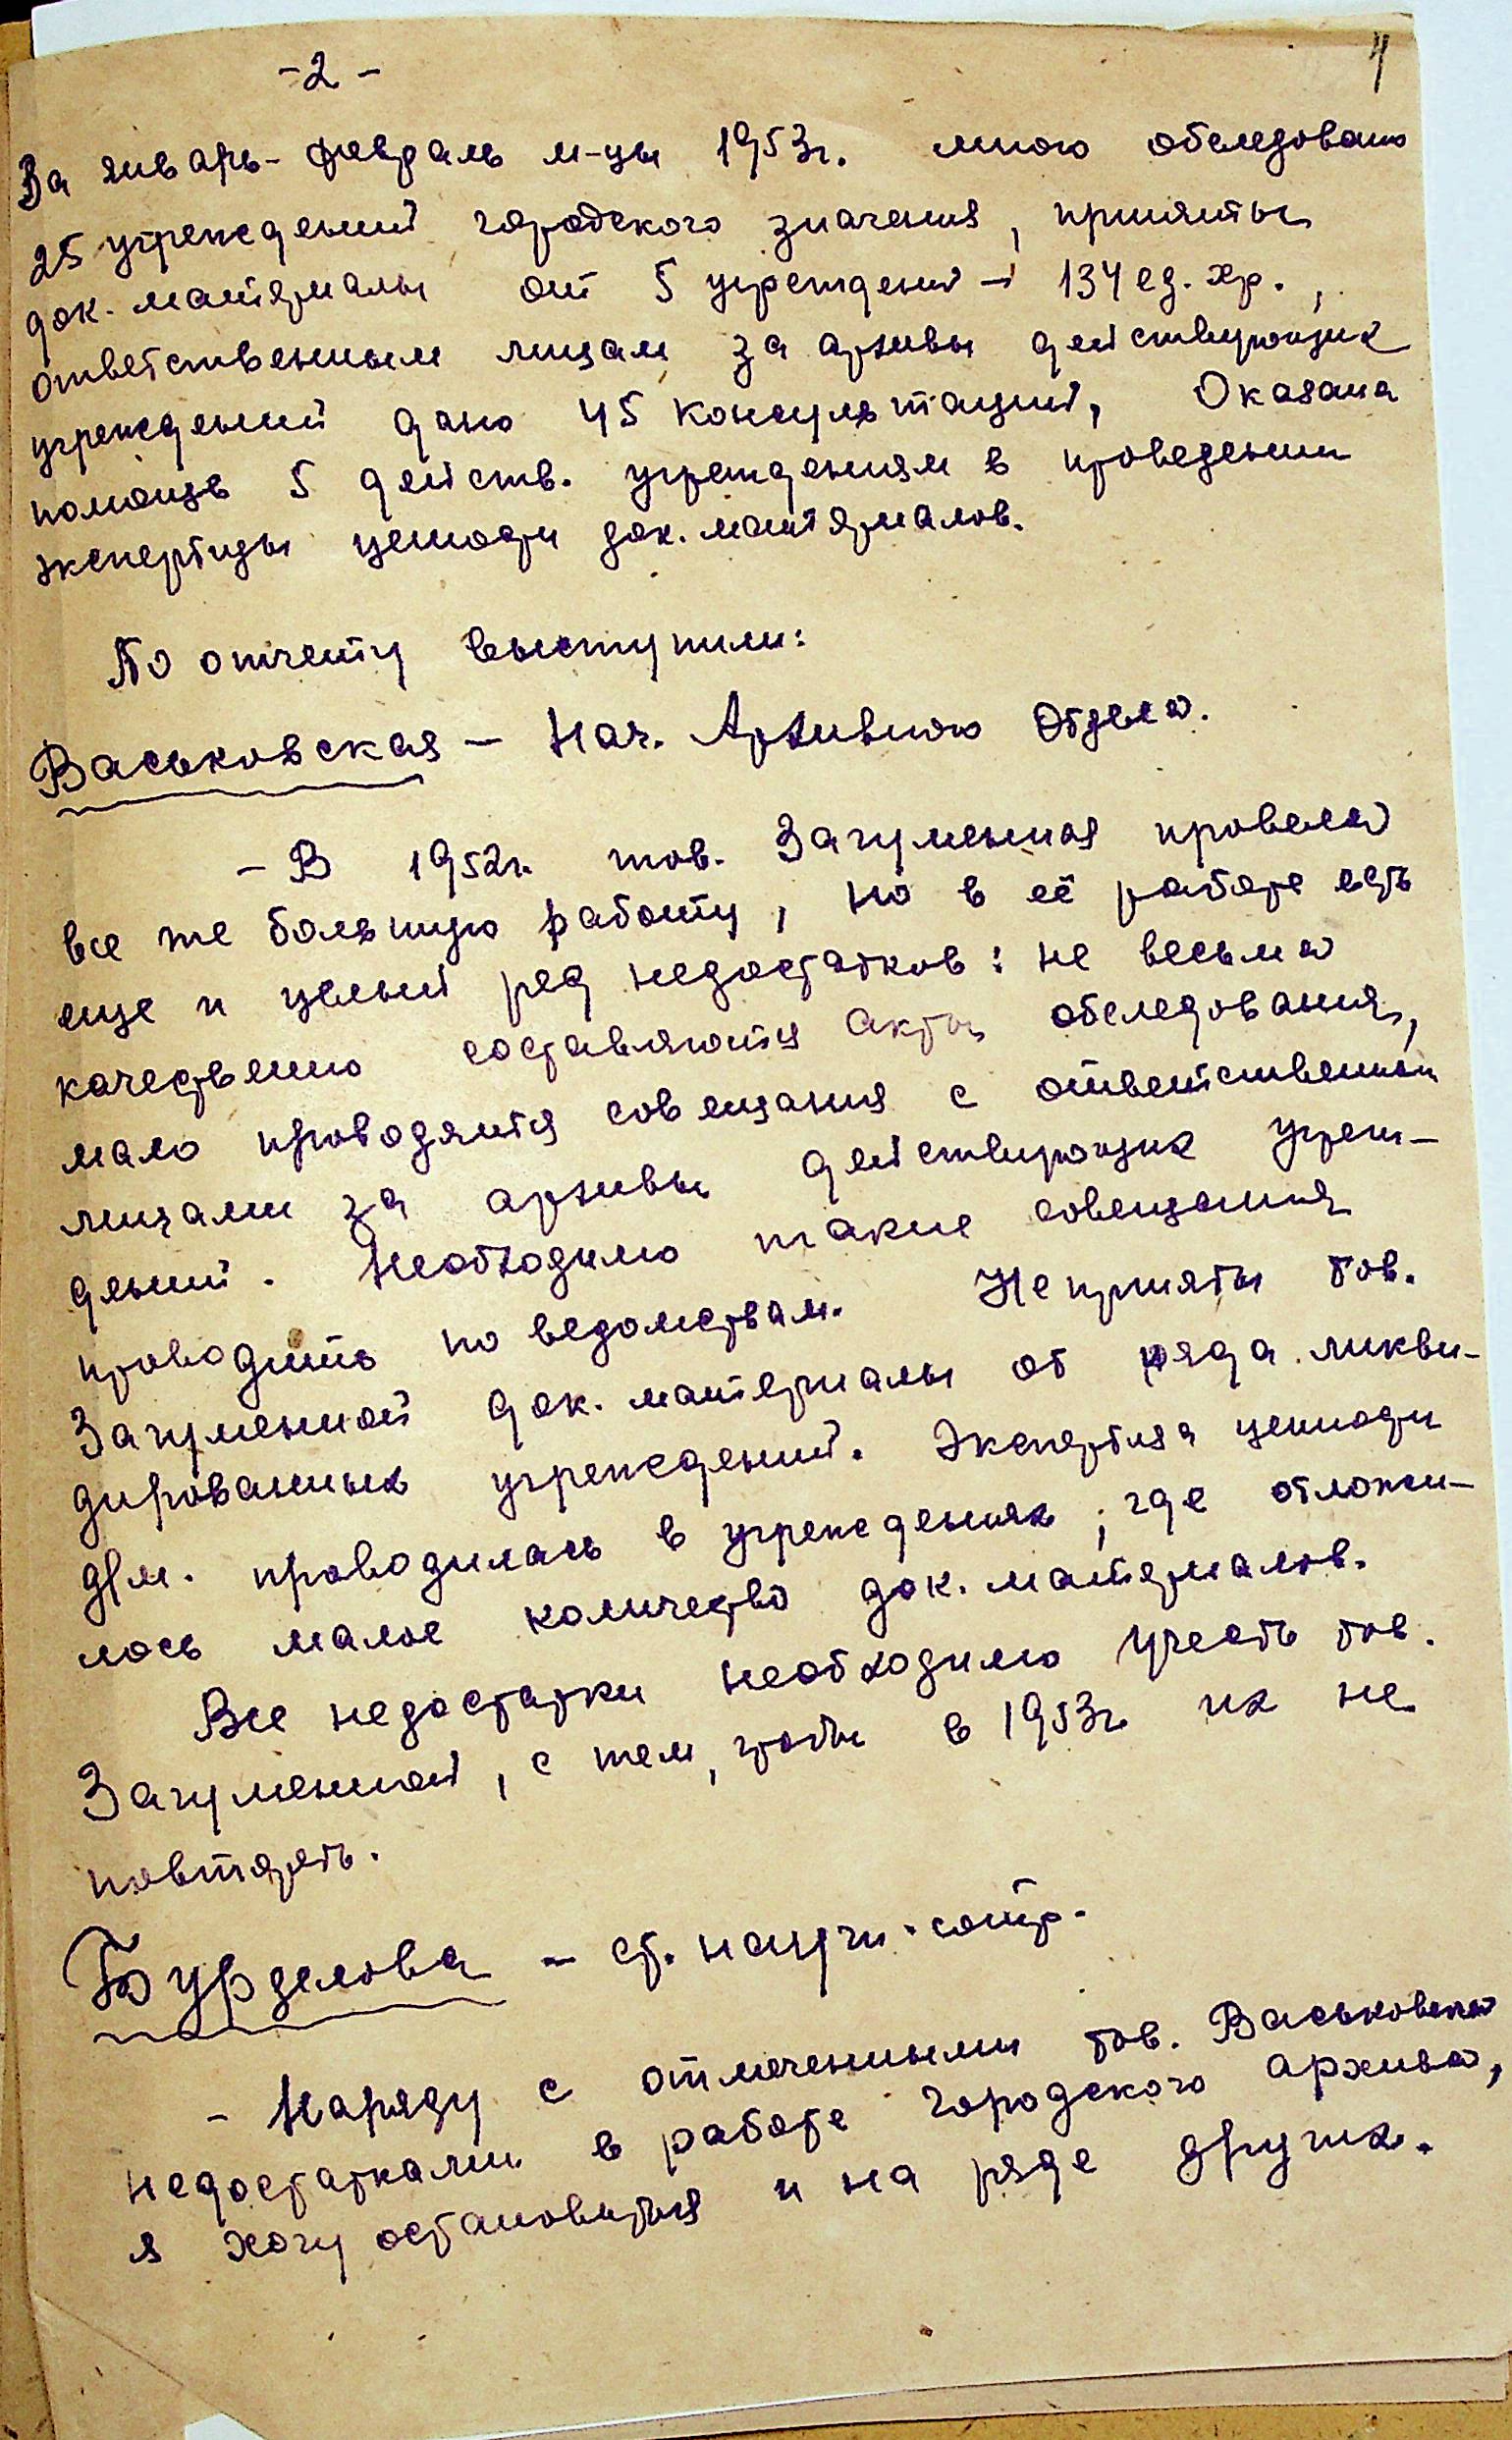 - 2 -
4
За январь-февраль м-цы 1953г. мною обследовано
25 учреждений городского значения, приняты
док. материалы от 5 учреждений - 134 ед. хр.,
ответственным лицам за архивы действующих
учреждений дано 45 консультаций, Оказана
помощь 5 действ. учреждениям в проведении
экспертизы ценности док. материалов.
По отчету выступили:
Васьковская - Нач. Архивного Отдела.
- В 1952г. тов. Загуменная провела
все же большую работу, но в её работе есть
еще и целый ряд недостатков: не весьма
качественно составляются акты обследования,
мало проводятся совещания с ответственными
лицами за архивы действующих учреж-
дений. Необходимо такие совещания
проводить по ведомствам. Не приняты тов.
Загуменной док. материалы от ряда ликви-
дированных учреждений. Экспертиза ценности
д/м. проводилась в учреждениях, где отложи-
лось малое количество док. материалов.
Все недостатки необходимо учесть тов.
Загуменной, с тем, чтобы в 1953г. их не
повторять.
Бурделова - ст. научн. сотр.
- Наряду с отмеченными тов. Васьковской
недостатками в работе городского архива,
я хочу остановиться и на ряде других.